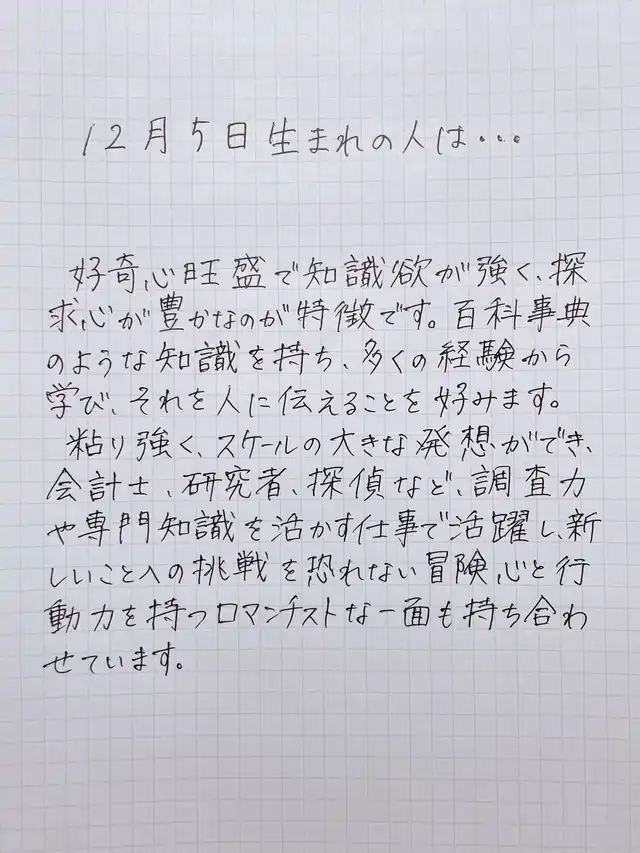 12月5日生まれの人は・・・
好奇心旺盛で知識欲が強く、探
求心が豊かなのが特徴です。百科事典
のような知識を持ち、多くの経験から
学び、それを人に伝えることを好みます。
粘り強く、スケールの大きな発想ができ、
会計士、研究者、探偵など、調査力
や専門知識を活かす仕事で活躍し、新
しいことへの挑戦を恐れない冒険心と行
動力を持つロマンチストな一面も持ち合わ
せています。